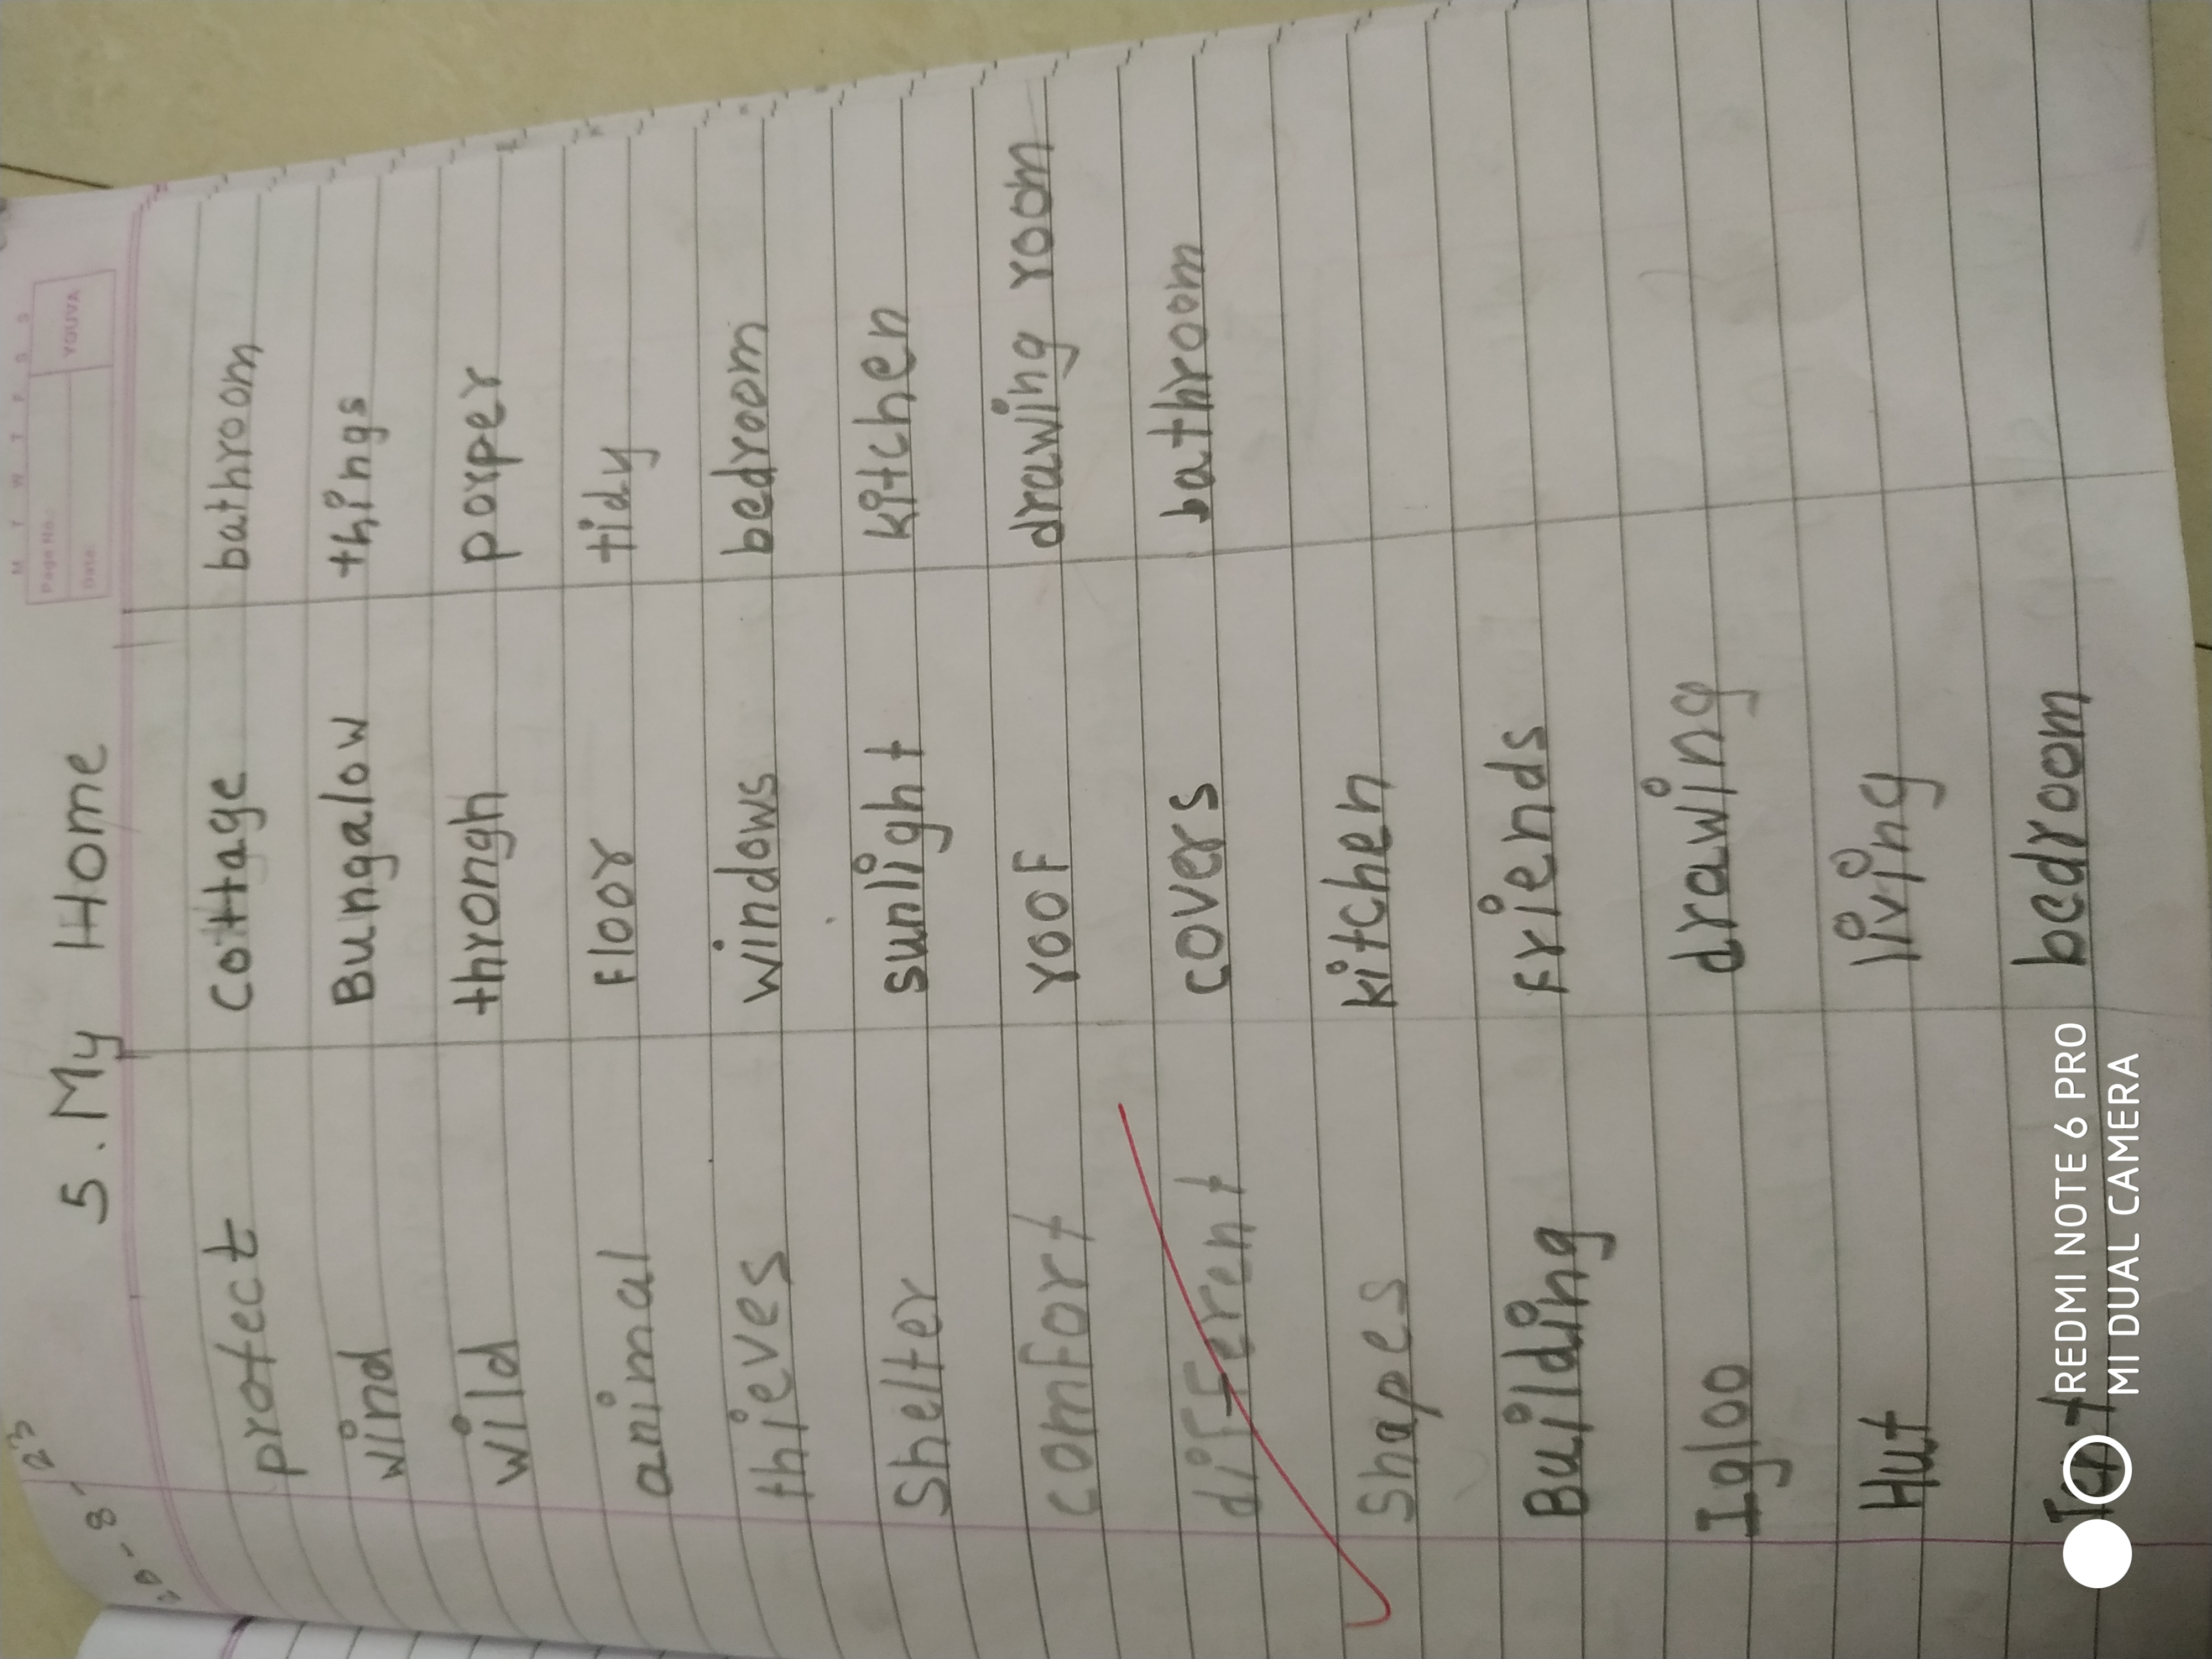 20-8-23
M T W T F S S
Page No.:
Date:
YOUVA
5. My Home
protect Cottage bathroom
wind Bungalow things
wild throngh porper
animal Floor tidy
thieves windows bedroom
Shelter sunlight kitchen
comFort rooF drawing room
diFFerent covers bathroom
Shapes kitchen
Building Friends
Igloo drawing
Hut living
Tent bedroom
REDMI NOTE 6 PRO
MI DUAL CAMERA